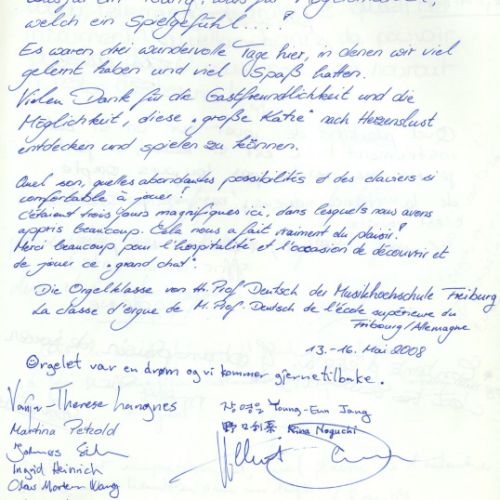 welch ein Spielgefühl....?
Es waren drei wundervolle Tage hier, in denen wir viel
gelernt haben und viel Spaß hatten.
Vielen Dank für die Gastfreundlichkeit und die
Möglichkeit, diese „große Katze" nach Herzenslust
entdecken und spielen zu können.
Quel son, quelles abondantes possibilités et des claviers si
comfortable à jouer!
C'étaient trois jours magnifiques ici, dans lesquels nous avons
appris beaucoup. Cela nous a fait vraiment du plaisir!
Merci beaucoup pour l'hospitalité et l'occasion de découvrir et
de jouer ce „grand chat".
Die Orgelklasse von H. Prof. Deutsch der Musikhochschule Freiburg
La classe d'orgue de M. Prof. Deutsch de l'école supérieure du
Fribourg/Allemagne
13.-16. Mai 2008
Orgelet var en drøm og vi kommer gjerne tilbake.
Therese
장영은 Young-Eun Jang
Martina Petzold
野口利菜 Rina Noguchi
Johannes
Ingrid Heinrich
Olav Morten Wang